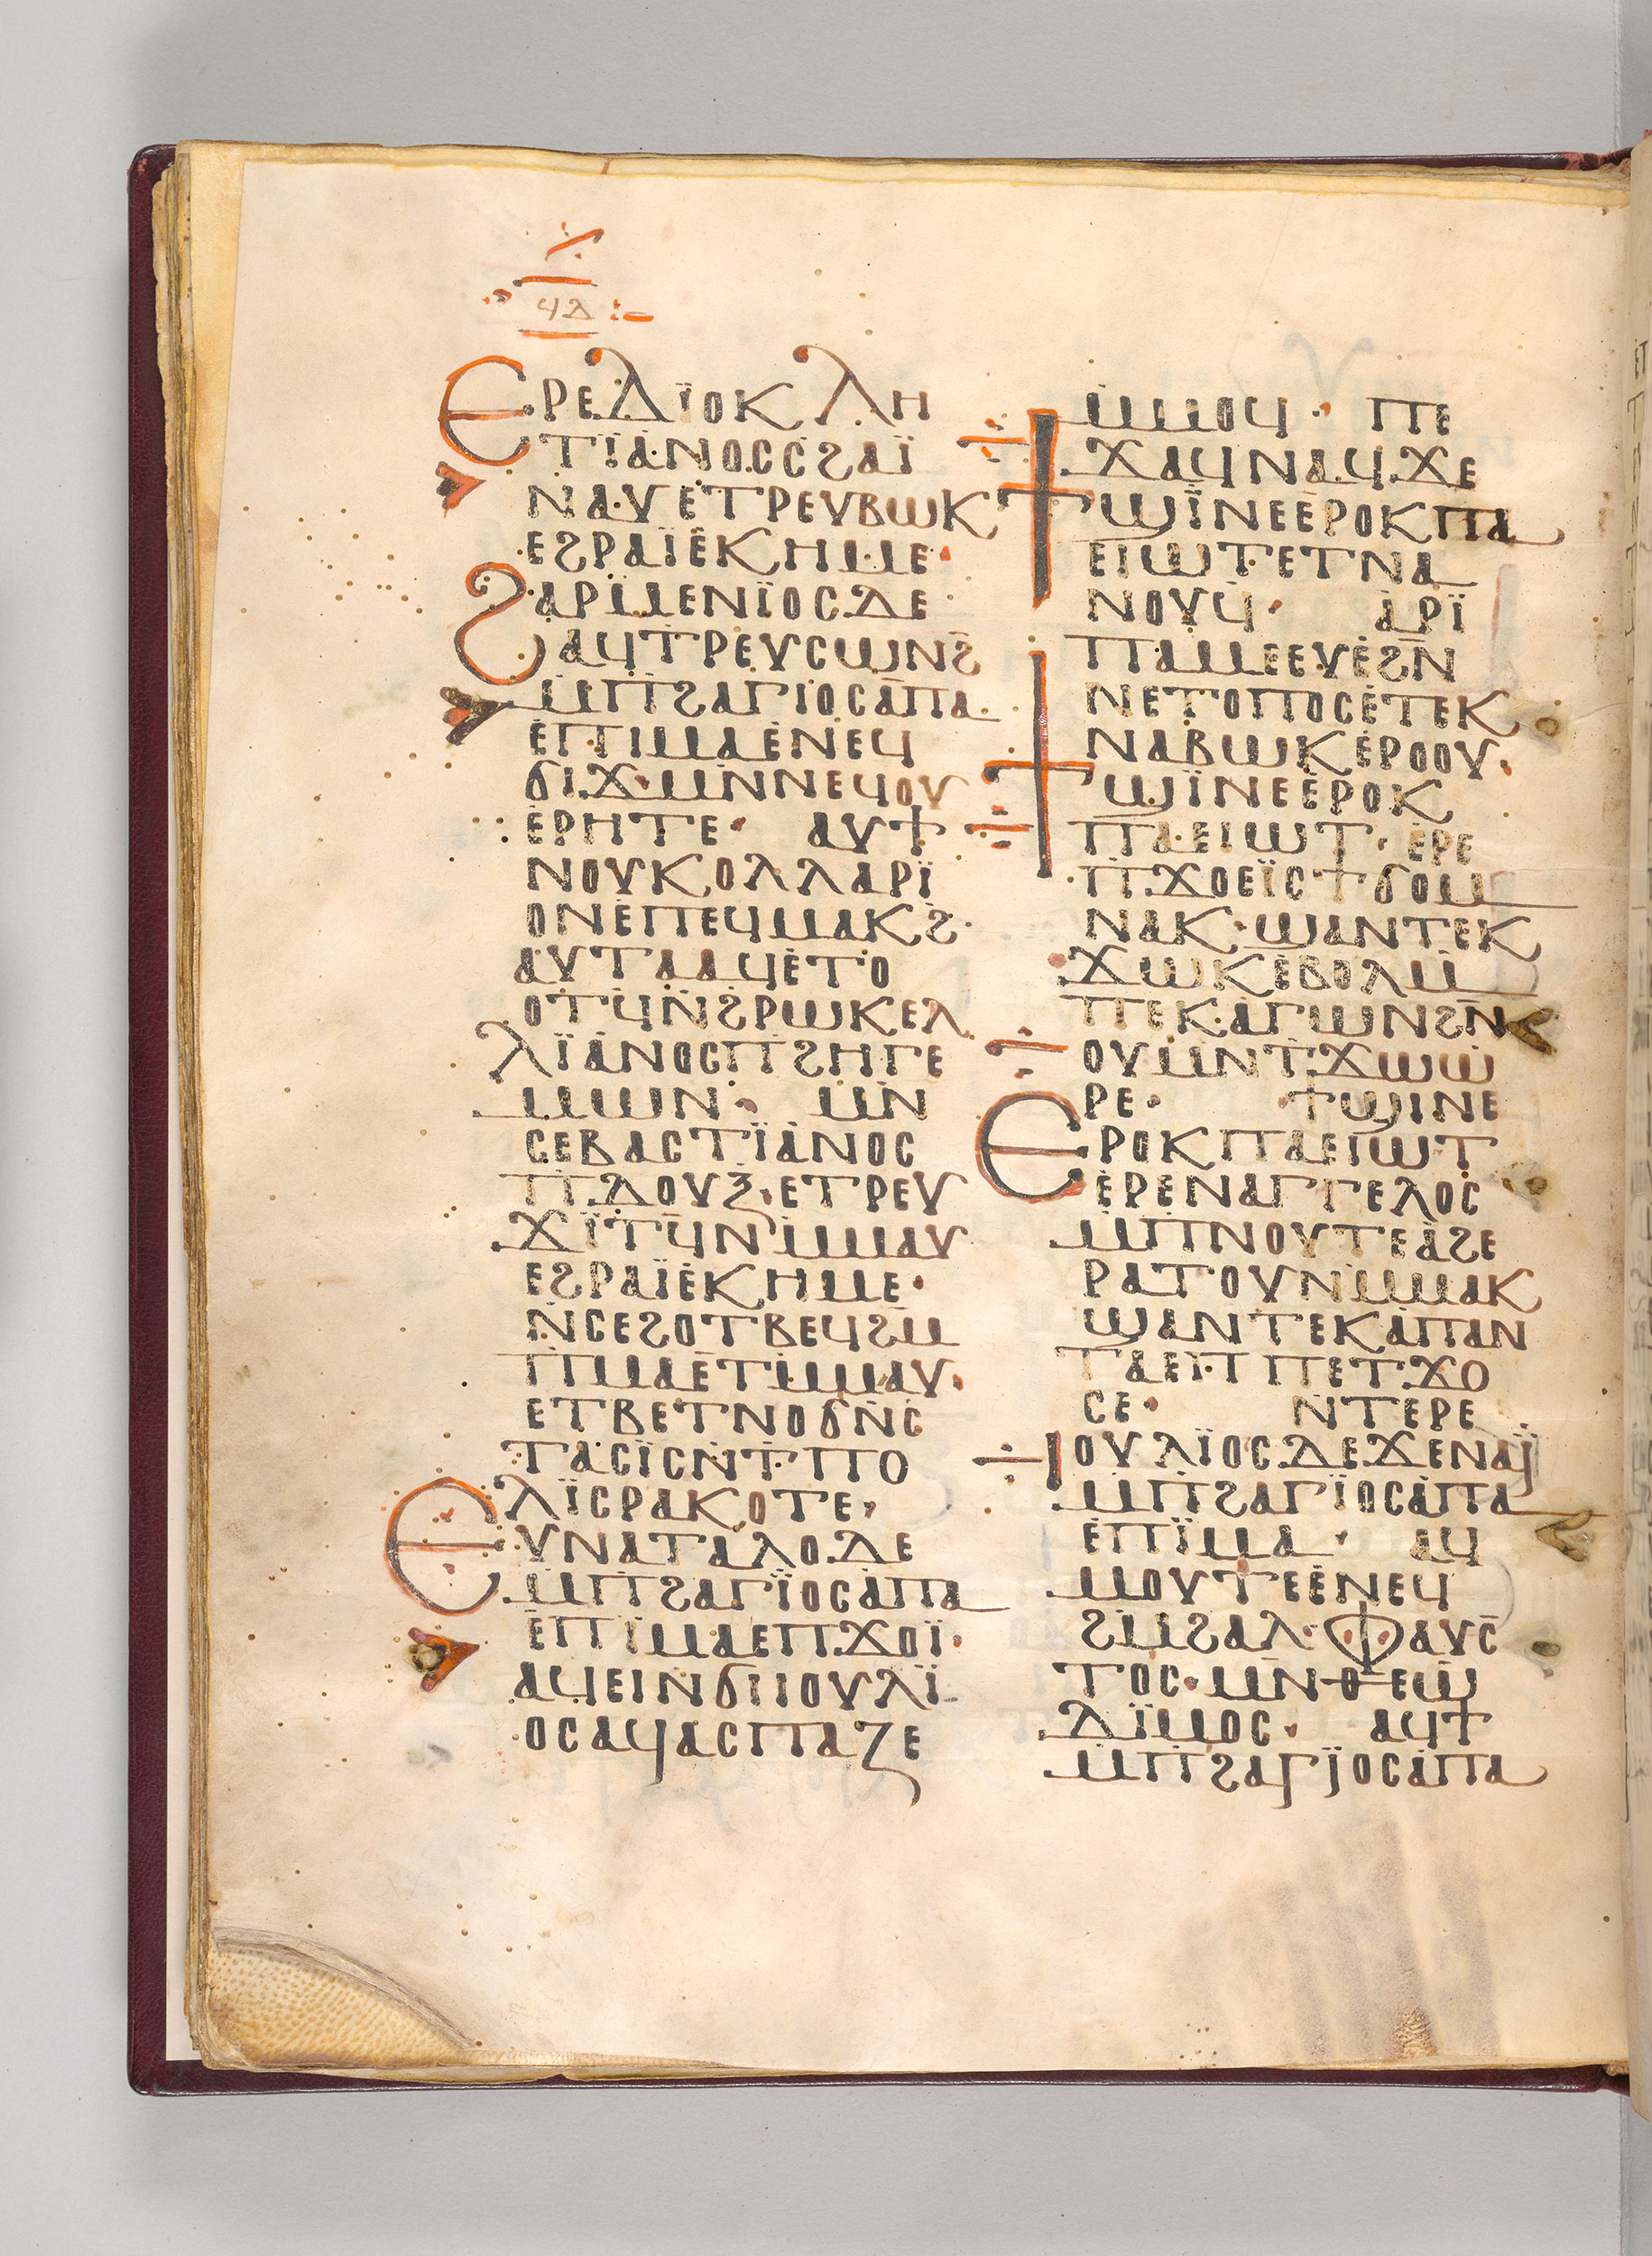 ϤⲆ
ⲈⲢⲈⲆⲒ̈ⲞⲔⲖⲎ
ⲦⲒⲀⲚⲞⲤⲤϨⲀⲒ̈
ⲚⲀⲨⲈⲦⲢⲈⲨⲂⲰⲔ
ⲈϨⲢⲀⲒ̈ⲈⲔⲎⲘⲈ·
ϨⲀⲢⲘⲈⲚⲒ̈ⲞⲤⲆⲈ
ⲀϤⲦⲢⲈⲨⲤⲰⲚϨ̄
ⲘⲠϨⲀⲄⲒⲞⲤⲀⲠⲀ
ⲈⲠⲒⲘⲀⲈⲚⲈϤ
ϬⲒϪⲘⲚⲚⲈϤⲞⲨ
ⲈⲢⲎⲦⲈ· ⲀⲨϮ
ⲚⲞⲨⲔⲟⲖⲖⲀⲢⲒ̈
ⲞⲚⲈⲠⲈϤⲘⲀⲔϨ·
ⲀⲨⲦⲀⲀϤⲈⲦⲞ
ⲞⲦϤⲚϨⲢⲰⲔⲈⲖ
ⲖⲒ̈ⲀⲚⲞⲤⲠϨⲎⲄⲈ
ⲘⲰⲚ· ⲘⲚ
ⲤⲈⲂⲀⲤⲦⲒ̈ⲀⲚⲞⲤ
ⲠⲆⲞⲨⲜ·ⲈⲦⲢⲈⲨ
ϪⲒ̈ⲦϤⲚⲘⲘⲀⲨ
ⲈϨⲢⲀⲒ̈ⲈⲔⲎⲘⲈ·
ⲚⲤⲈϨⲞⲦⲂⲈϤϨⲘ
ⲠⲘⲀⲈⲦⲘⲘⲀⲨ·
ⲈⲦⲂⲈⲦⲚⲞϬⲚⲤ
ⲦⲀⲤⲒⲤⲚⲦⲠⲞ
ⲖⲒ̈ⲤⲢⲀⲔⲞⲦⲈ·
ⲈⲨⲚⲀⲦⲀⲖⲞⲆⲈ
ⲘⲠϨⲀⲄⲒ̈ⲞⲤⲀⲠⲀ
ⲈⲠⲒⲘⲀⲈⲠϪⲞⲒ̈·
ⲀϤⲈⲒⲚϬⲒⲒⲞⲨⲖⲒ̈
ⲞⲤⲀϤⲀⲤⲠⲀⲌⲈ
ⲘⲘⲞϤ· ⲠⲈ
ϪⲀϤⲚⲀϤϪⲈ
ϮϢⲒ̈ⲚⲈⲈⲢⲞⲔⲠⲀ
ⲈⲒⲰⲦⲈⲦⲚⲀ
ⲚⲞⲨϤ· ⲀⲢⲒ̈
ⲠⲀⲘⲈⲈⲨⲈϨ̄Ⲛ̄
ⲚⲈⲦⲞⲠⲞⲤⲈⲦⲈⲔ
ⲚⲀⲂⲰⲔⲈⲢⲞⲞⲨ·
ϮϢⲒ̈ⲚⲈⲈⲢⲞⲔ
ⲠⲀⲈⲒⲰⲦ· ⲈⲢⲈ
ⲠϪⲞⲈⲒ̈ⲤϮϬⲞⲘ
ⲚⲀⲔ·ϢⲀⲚⲦⲈⲔ
ϪⲰⲔⲈⲂⲞⲖⲘ
ⲠⲈⲔⲀⲄⲰⲚϨⲚ
ⲞⲨⲘⲚⲦϪⲰⲰ
ⲢⲈ· ϮϢⲒⲚⲈ
ⲈⲢⲞⲔⲠⲀⲈⲒⲰⲦ
ⲈⲢⲈⲚⲀⲄⲄⲈⲖⲞⲤ
ⲘⲠⲚⲞⲨⲦⲈⲀϨⲈ
ⲢⲀⲦⲞⲨⲚⲘⲘⲀⲔ
ϢⲀⲚⲦⲈⲔⲀⲠⲀⲚ
ⲦⲀⲈⲒⲠⲠⲈⲦϪⲞ
ⲤⲈ· ⲚⲦⲈⲢⲈ
ⲒⲞⲨⲖⲒ̈ⲞⲤⲆⲈϪⲈⲚⲀⲒ̈
ⲘⲠϨⲀⲄⲒ̈ⲞⲤⲀⲠⲀ
ⲈⲠⲒ̈ⲘⲀ· ⲀϤ
ⲘⲞⲨⲦⲈⲈⲚⲈϤ
ϨⲘϨⲀⲖ·ⲪⲀⲨⲤ
ⲦⲞⲤ·ⲘⲚⲐⲈⲰ
ⲆⲒ̈ⲘⲞⲤ· ⲀϤϮ
ⲘⲠϨⲀⲄⲒ̈ⲞⲤⲀⲠⲀ